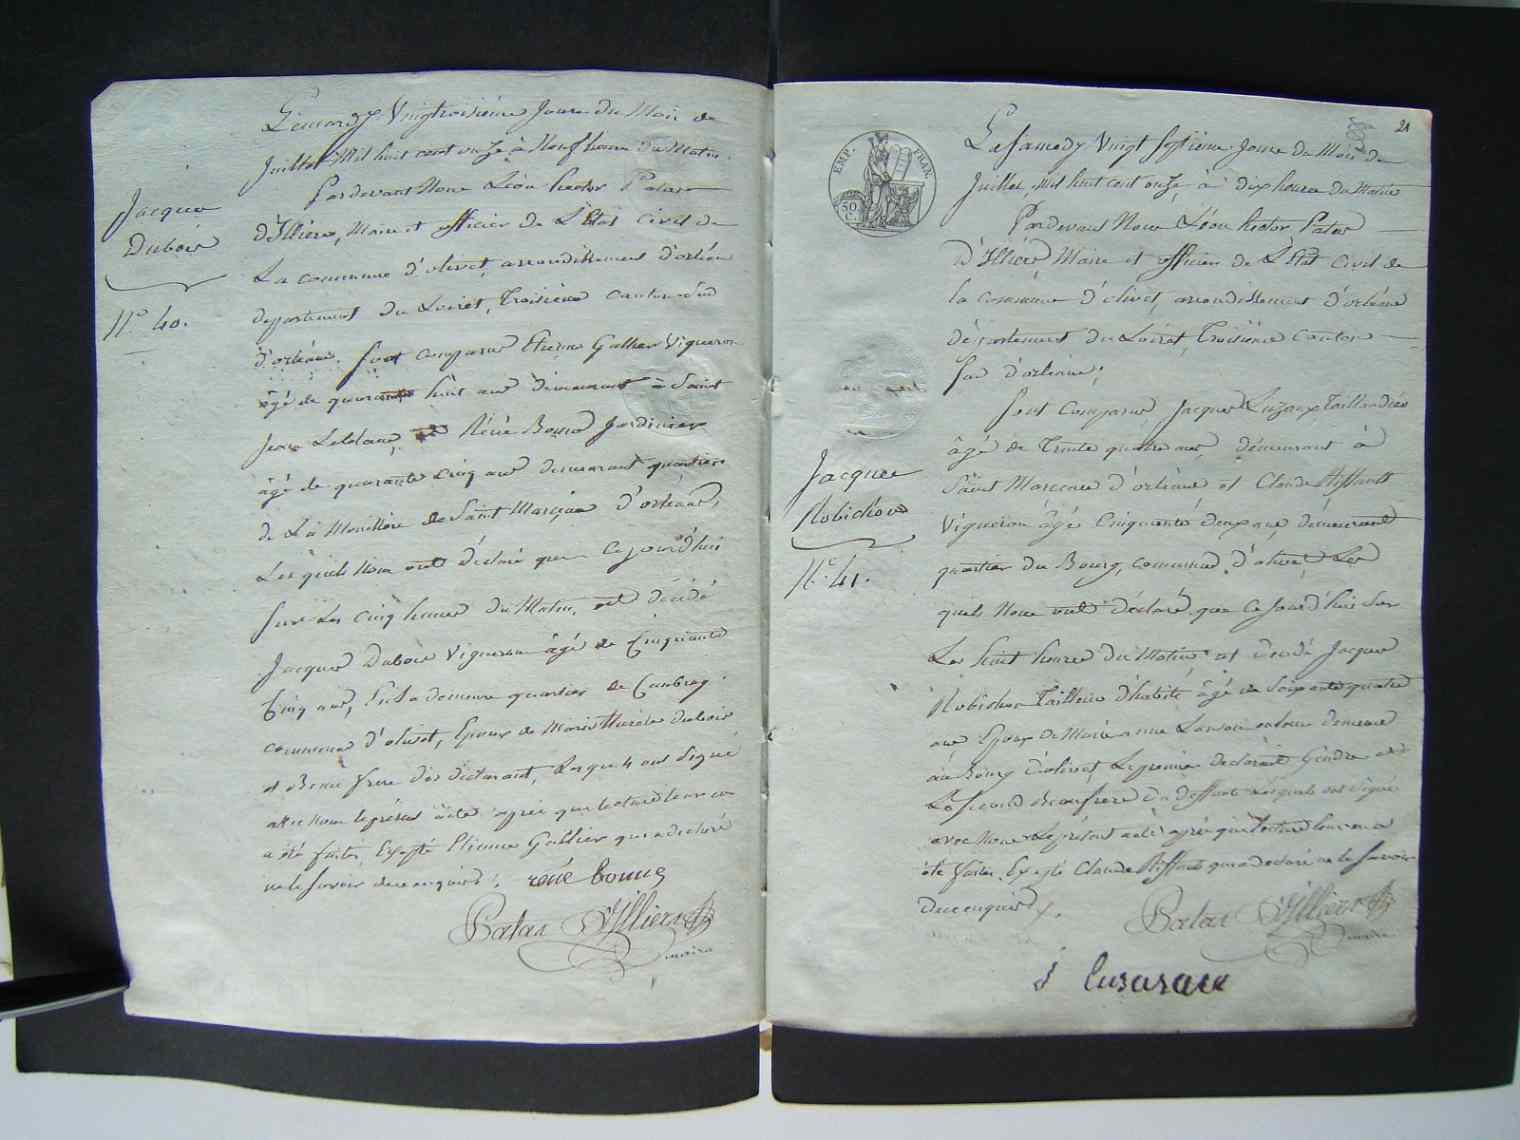 Lemardy Vingtroisième Jour du Mois de
Juillet Mil huit cent onze à Neuf heures du Matin.
Pardevant Nous Léon hector Patas
d'Illiers, Maire et officier de L'Etat Civil de
La commune d'olivet, arrondissement d'orléans
departement du Loiret, Troisième Canton sud
d'orléans. Sont comparus Etienne Gallier Vigneron
âgé de quarante huit ans demeurant à Saint
Jean Leblanc, et Réné Jardinier
âgé de quarante Cinq ans demeurant quartier
de La Mouillère de Saint Marceau d'orléans,
Lesquels Nous ont déclaré que Cejourd'hui
Sur Les Cinq heures du Matin, est décédé
Jacques Dubois Vigneron âgé de Cinquante
Cinq ans, En Sa demeure quartier de Caubray
commune d'olivet, Epoux de Marie Dubois
et Beau frere des declarant, Lesquels ont Signé
avec nous leprésent acte après que lecture leur en
a été faite, Excepté Etienne Gallier qui a declaré
ne le Savoir de ce enquis. rené
Patas D'Illiers
maire
Jacques
Dubois
N.° 40.
21
EMP. FRAN.
50 C.
Le Samedy Vingt Septieme Jour du Mois de
Juillet, Mil huit cent onze, à dix heures du Matin
Pardevant Nous Léon hector Patas
D'Illiers Maire et officier de L'Etat Civil de
la Commune d'olivet, arrondissement d'orléans
département du Loiret, Troisième Canton
Sud d'orléans;
Sont Comparus Jacques Taillandier
âgé de Trente quatre ans, demeurant à
Saint Marceau d'orléans et Claude
Vigneron âgé Cinquante deux ans demeurant
quartier du Bourg, commune d'olivet, Les
quels Nous ont déclaré que Ce Jourd'hui Sur
Les huit heures du Matin est décédé Jacques
Robichon Tailleur d'habits âgé de Soixante quatre
ans Epoux de Marie anne en Sa demeure
au Bourg d'olivet, Le premier declarant Gendre et
Le Second Beaufrère du deffunt Lesquels ont Signé
avec Nous Le présent acte après que Lecture leur en a
été faite, Excepté Claude qui a declaré ne le Savoir
de ce enquis.
Patas D'Illiers
maire
Jacques
Robichon
N.° 41.